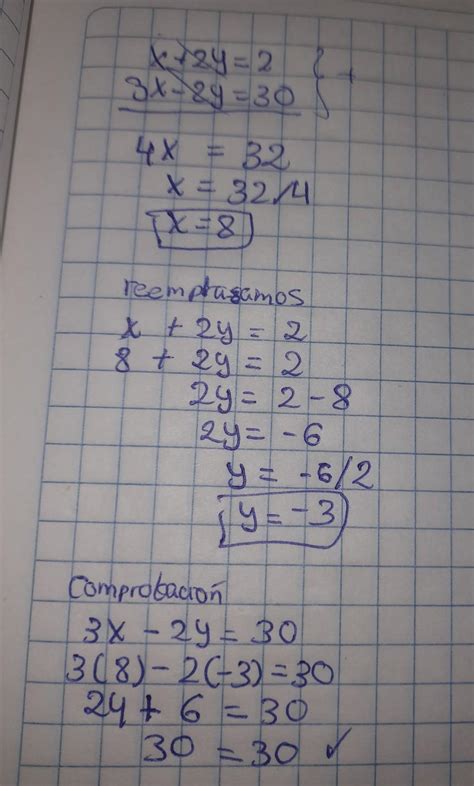 x + 2y = 2
3x - 2y = 30 } +
4x = 32
x = 32/4
x = 8
reemplasamos
x + 2y = 2
8 + 2y = 2
2y = 2 - 8
2y = -6
y = -6/2
y = -3
Comprobación
3x - 2y = 30
3(8) - 2(-3) = 30
24 + 6 = 30
30 = 30 ✓